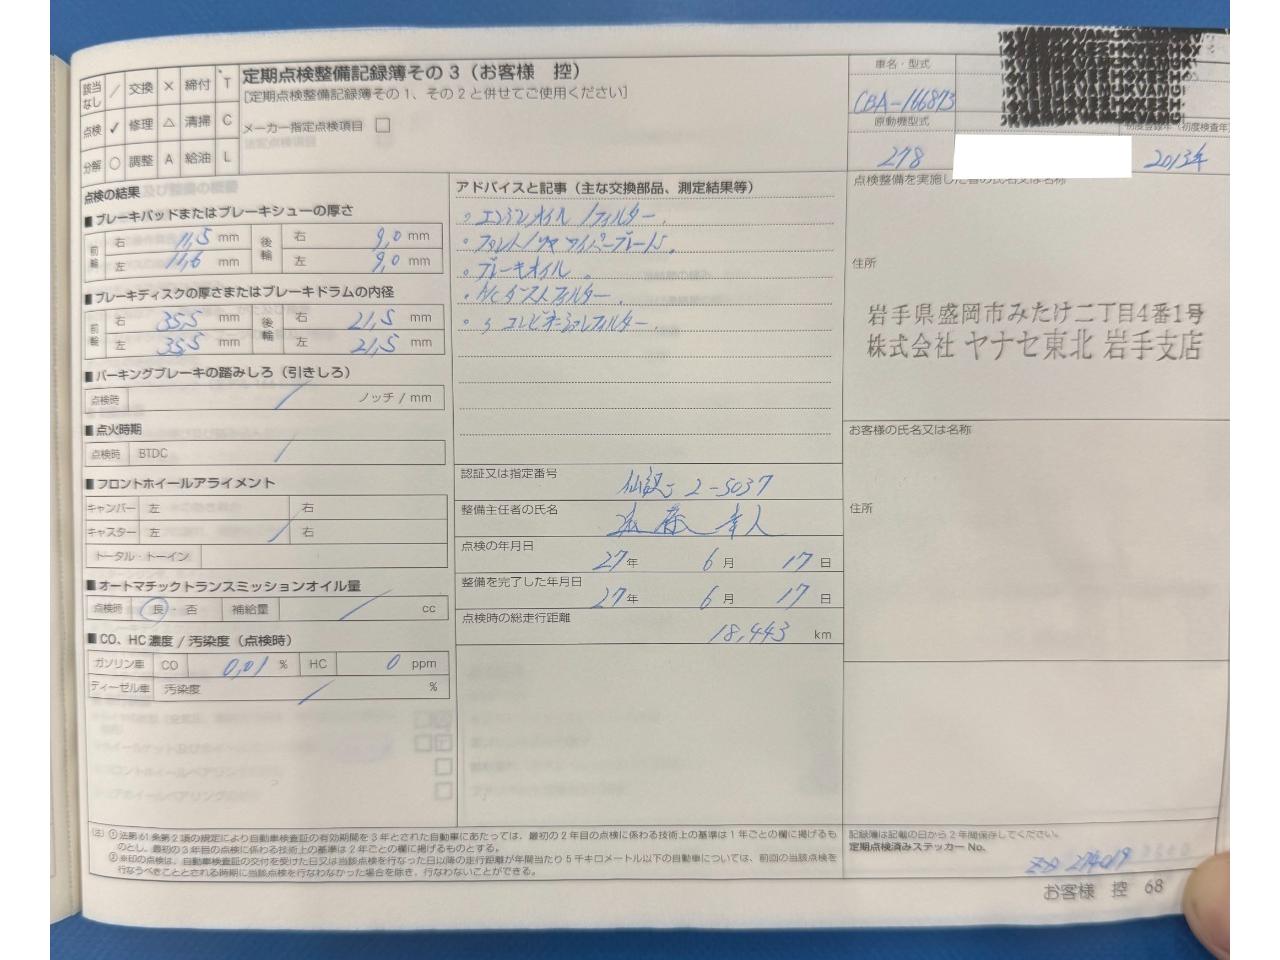 該当なし / 交換 × 締付 T
点検 ✓ 修理 △ 清掃 C
分解 ○ 調整 A 給油 L
定期点検整備記録簿その3(お客様 控)
[定期点検整備記録簿その1、その2と併せてご使用ください]
メーカー指定点検項目 □
車名・型式
CBA-166873
原動機型式
278
初度登録年(初度検査年)
2013年
点検の結果
■ブレーキパッドまたはブレーキシューの厚さ
前輪 右 11,5 mm 後輪 右 9,0 mm
左 11,6 mm 左 9,0 mm
■ブレーキディスクの厚さまたはブレーキドラムの内径
前輪 右 35,5 mm 後輪 右 21,5 mm
左 35,5 mm 左 21,5 mm
■パーキングブレーキの踏みしろ(引きしろ)
点検時 / ノッチ / mm
■点火時期
点検時 BTDC /
■フロントホイールアライメント
キャンバー 左 右
キャスター 左 / 右
トータル・トーイン
■オートマチックトランスミッションオイル量
点検時 良・否 補給量 / cc
■CO、HC濃度 / 汚染度(点検時)
ガソリン車 CO 0,01 % HC 0 ppm
ディーゼル車 汚染度 / %
アドバイスと記事(主な交換部品、測定結果等)
。エンジンオイル / フィルター.
。フロント / リヤ ワイパーブレード.
。ブレーキオイル 。
。A/Cダストフィルター.
。 コンビネーションフィルター.
認証又は指定番号
2-5037
整備主任者の氏名
点検の年月日
27年 6月 17日
整備を完了した年月日
27年 6月 17日
点検時の総走行距離
18,443 km
点検整備を実施した者の氏名又は名称
住所
岩手県盛岡市みたけ二丁目4番1号
株式会社 ヤナセ東北 岩手支店
お客様の氏名又は名称
住所
(注) ①法第61条第2項の規定により自動車検査証の有効期間を3年とされた自動車にあたっては、最初の2年目の点検に係わる技術上の基準は1年ごとの欄に掲げるも
のとし、最初の3年目の点検に係わる技術上の基準は2年ごとの欄に掲げるものとする。
②※印の点検は、自動車検査証の交付を受けた日又は当該点検を行なった日以降の走行距離が年間当たり5千キロメートル以下の自動車については、前回の当該点検を
行なうべきこととされる時期に当該点検を行なわなかった場合を除き、行なわないことができる。
記録簿は記載の日から2年間保存してください。
定期点検済みステッカー No.
274019
お客様 控 68